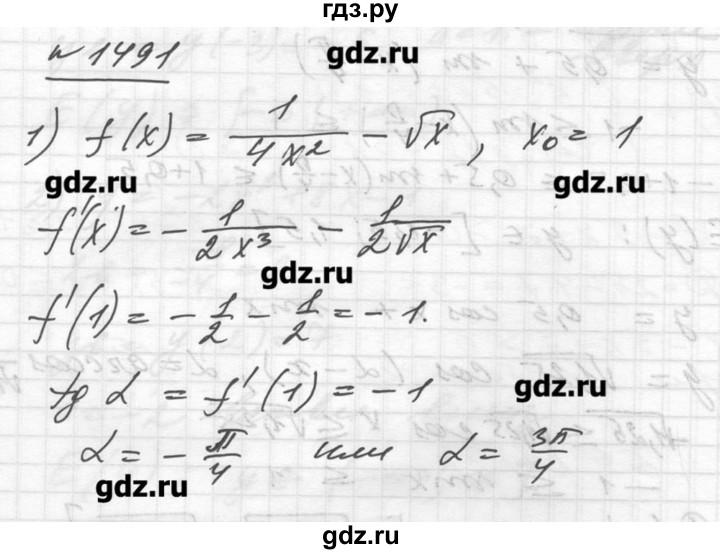 гдз.ру
№ 1491 gdz.ru
1) f(x) = 1/(4x²) − √x, x₀ = 1
gdz.ru gdz.ru
f'(x) = − 1/(2x³) − 1/(2√x)
gdz.ru
f'(1) = − 1/2 − 1/2 = − 1.
tg α = f'(1) = − 1 gdz.ru
α = − π/4 или α = 3π/4
gdz.ru
gdz.ru